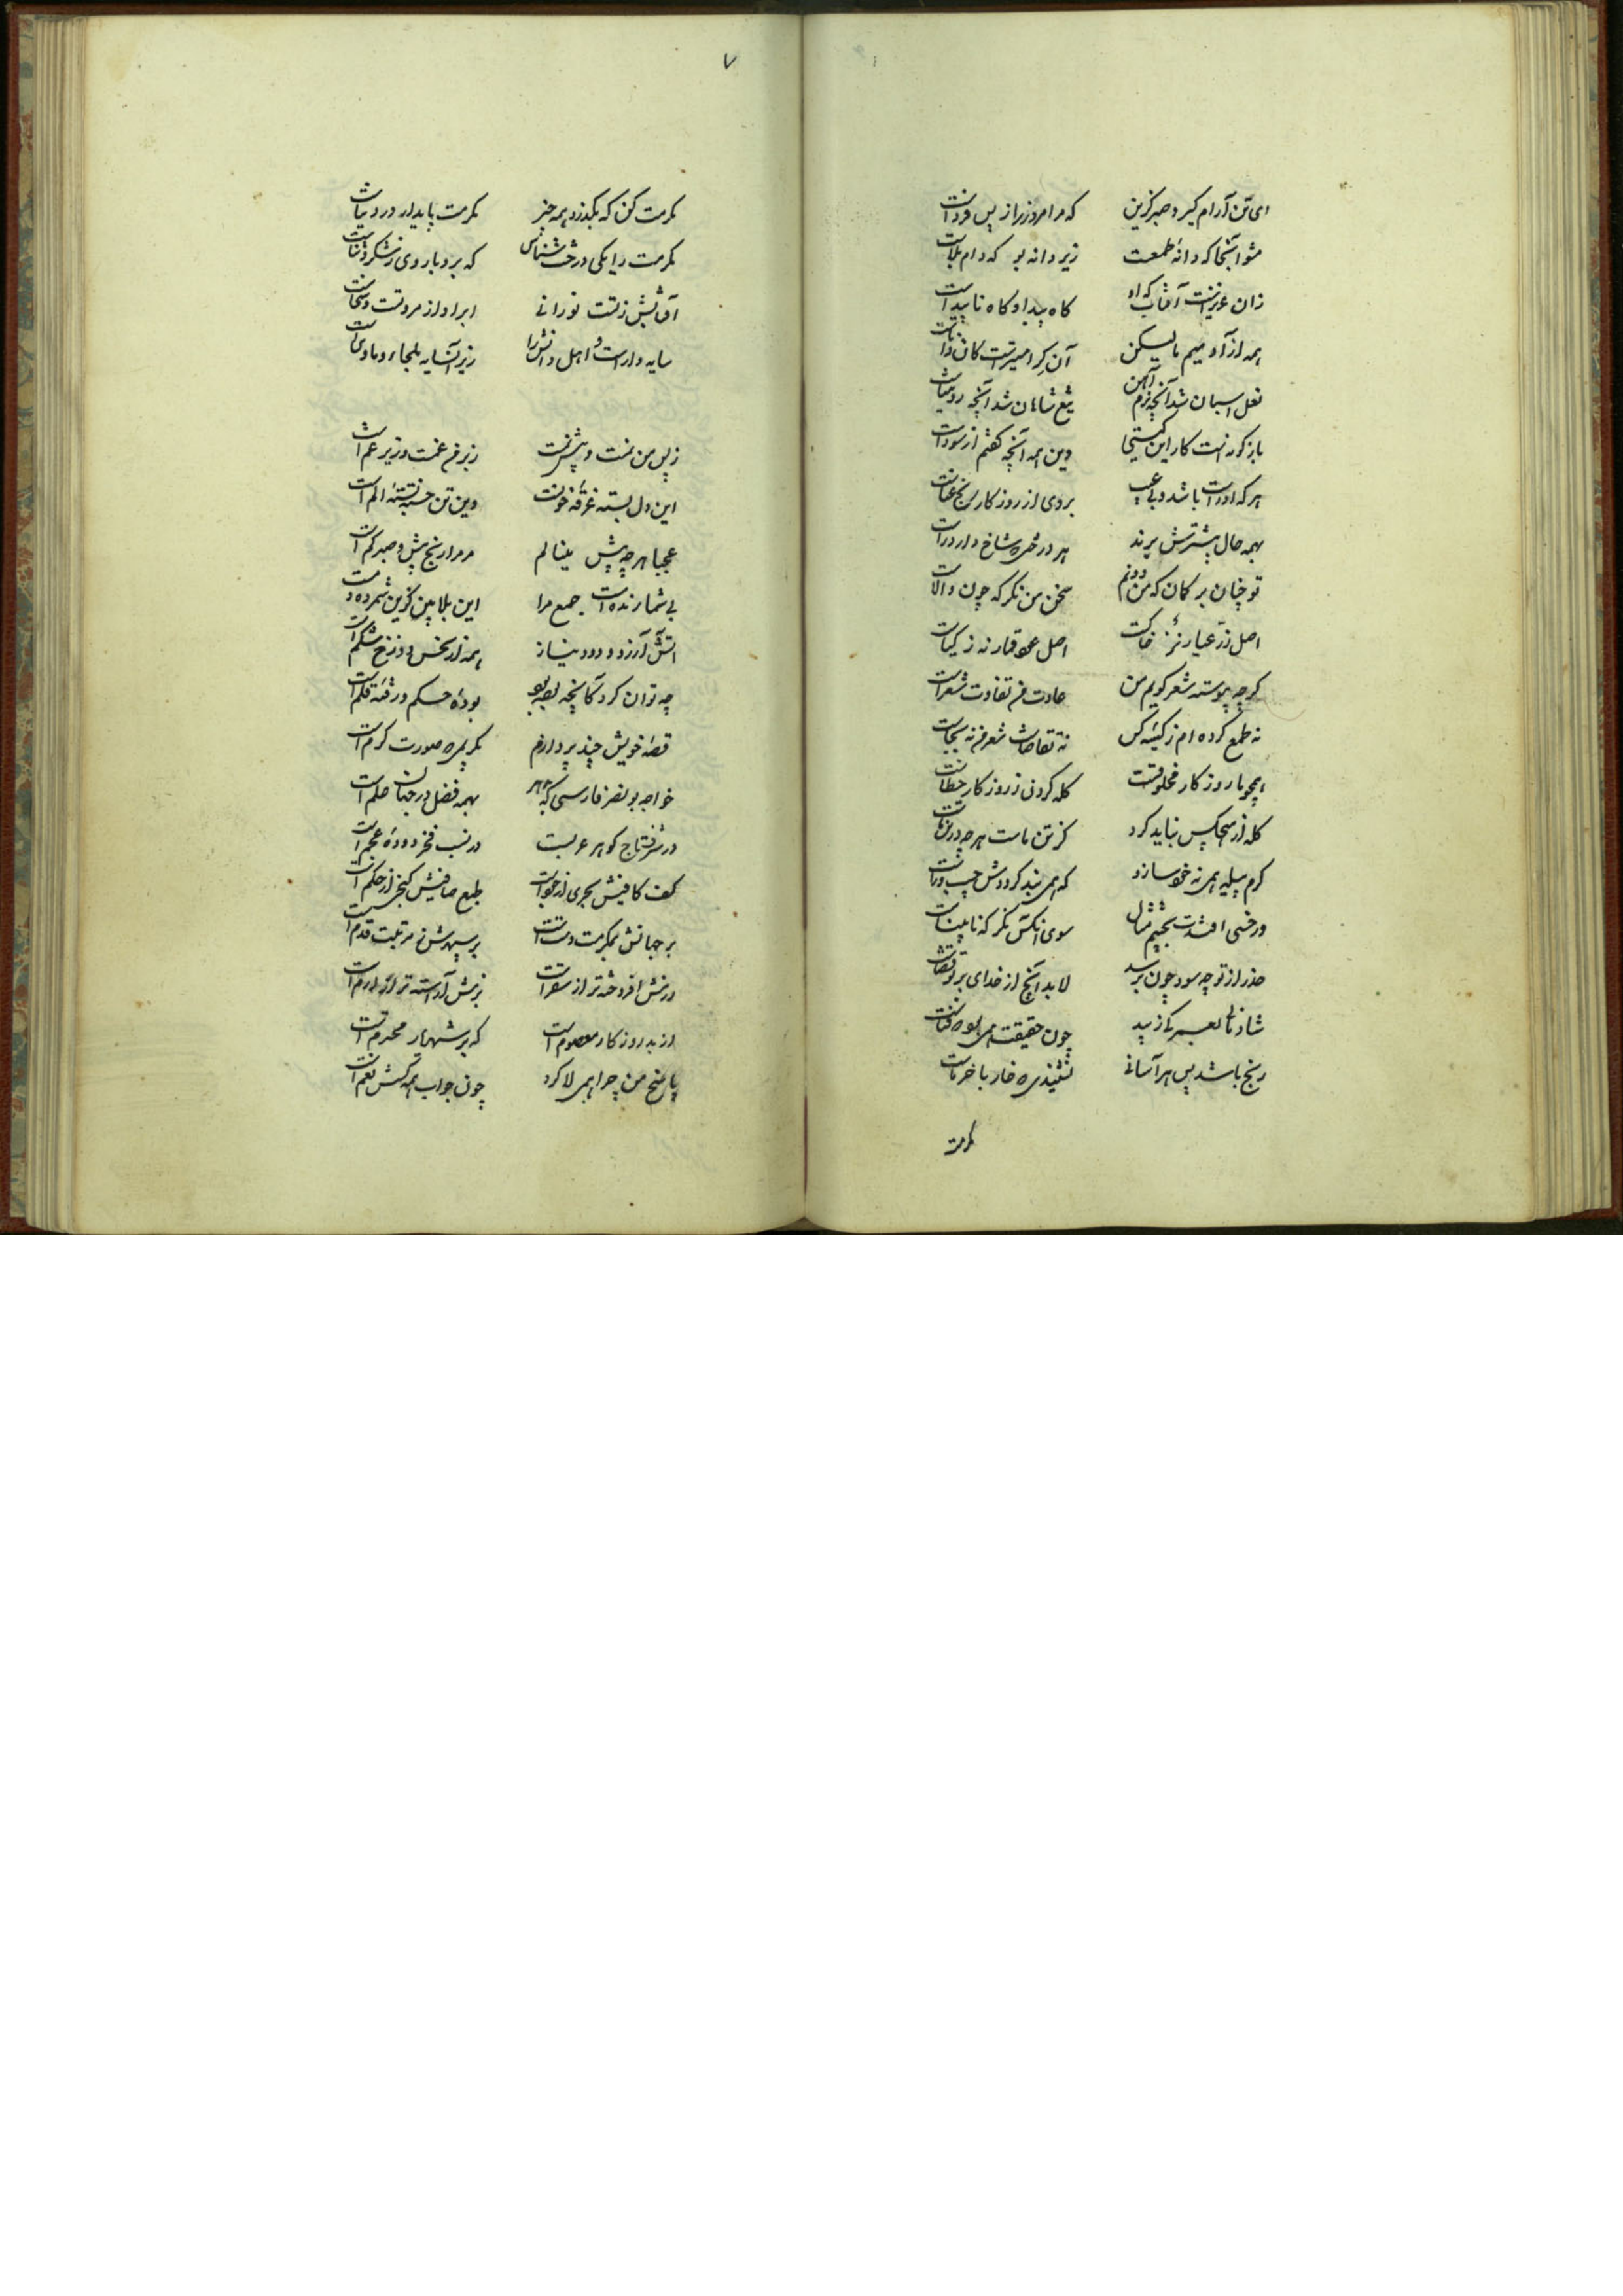 ای تن آرام گیر و صبر گزین که مر امروز را ز پس فرداست
مشو آنجا که دانه طمعست زیر دانه بود که دام بلاست
زان عزیزست آفتاب که او گاه پیدا و گاه ناپیداست
همه از آدمیم ما لیکن آن گرامیترست کان داناست
نعل اسبان شد آنچه نرم آهن تیغ شاهان شد آنچه روییناست
بازگونه است کار این گیتی وین همه آنچه گفتم از سوداست
هر که او راست باشد و بی عیب بروی از روزگار رنج و عناست
بهمه حال بیشترش برند هر درختی که شاخ دارد راست
تو چنان بر گمان که من دونم سخن من نگر که چون والاست
اصل زر عیار نز خاکست اصل عود قمار نه ز گیاست
گرچه پیوسته شعر گویم من عادت من نه عادت شعراست
نه طمع کرده ام ز کیسه کس نه تقاضاست شعر من نه هجاست
همچو ما روزگار مخلوقست گله کردن ز روزگار خطاست
گله از هیچکس نباید کرد کز تن ماست هرچه در تن ماست
کرم پیله همی نه خود سازد که همی بند گرددش چپ و راست
ور خسی افتدت بچشم منال سوی آنکس نگر که نابیناست
حذر از تو چه سود چون برسد لابد آنچ از خدای بر تو قضاست
شادی از پی چون حقیقت همی فناست
رنج باشد پس هر آسانی نشنیدی که خار با خرماست
مکرمت
۷
مکرمت کن که بگذرد همه چیز مکرمت پایدار در دنیاست
مکرمت را یکی درخت شناس که بر و بار وی ز شکر و ثناست
آفتابش ز تست نورانی ابر او از مروت و سخاست
سایه دارست و اهل دانش را زیر آن سایه ملجاء و ماویست
ز پس من غمست و پیش غمست زبرم غمست و زیر غم است
این دل بسته غرقه خونست وین تن خسته تفته الم است
عجبا هرچه بیش مینالم مر مرا رنج بیش و صبر کم است
بی شمارنده است جمع مرا این بلا بین کزین شمرده دم است
آتش آرزو و دود نیاز همه از بخس دوزخ شکم است
چه توان کرد کانچه بود و بود بوده حکم و رفته قلم است
قصه خویش چند پردازم بکریمی که صورت کرم است
خواجه بونصر فارسی که گهر بهمه فضل در جهان علم است
در شرف تاج گوهر عربست در نسب فخر دوده عجم است
کف کافیش بحری از جودست طبع صافیش گنجی از حکم است
بر جهانش بمکرمت دست است بر سپهرش ز مرتبت قدم است
رزمش افروخته تر از سقرست بزمش آراسته تر از ارم است
از بد روزگار معصومست که بر شهریار محترم است
پاسخ من چرا همی لا کرد چون جواب همه کسش نعم است